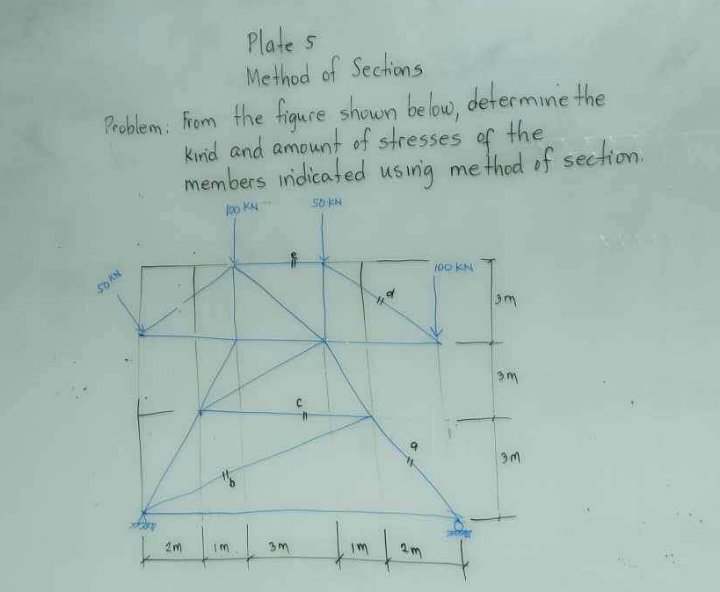 Plate 5
Method of Sections
Problem: From the figure shown below, determine the
kind and amount of stresses of the
members indicated using method of section.
100 KN
50 KN
50 KN
e
100 KN
d
3m
3m
c
a
3m
b
2m
1m
3m
1m
2m